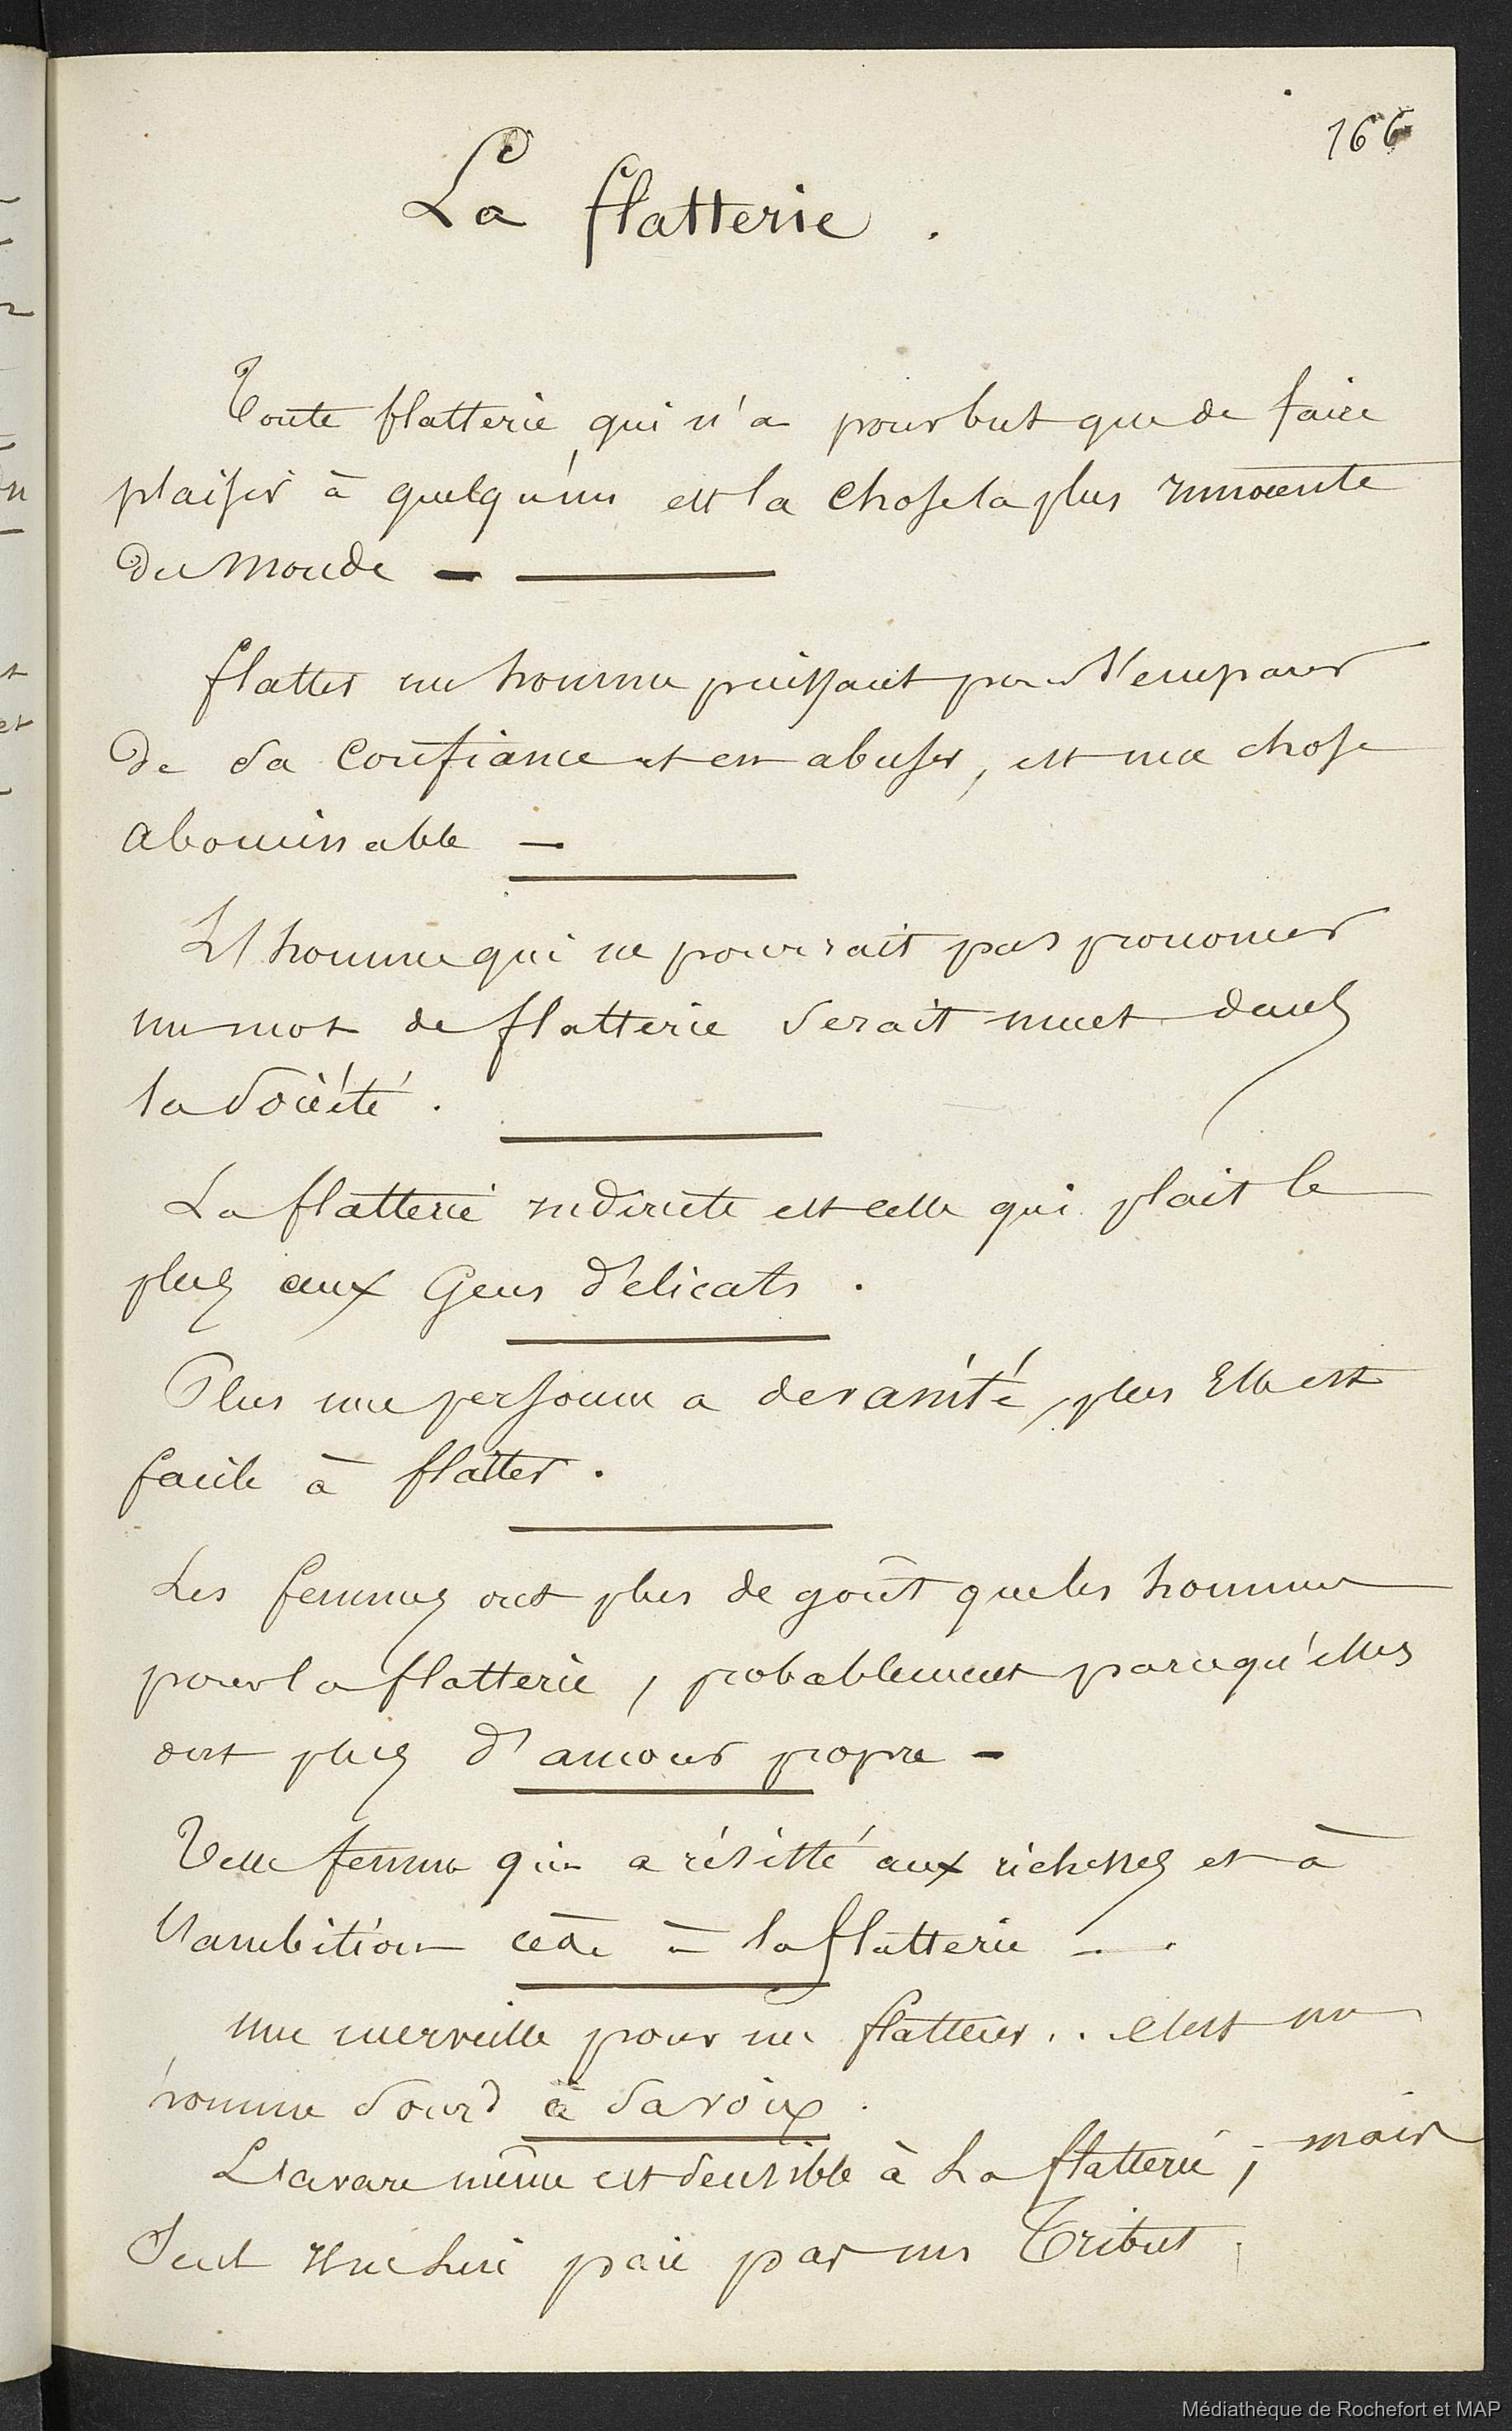 166
La flatterie .
Toute flatterie qui n'a pour but que de faire
plaisir à quelqu'un est la chose la plus innocente
du monde —
flatter un homme puissant pour s'emparer
de sa confiance et en abuser, est une chose
abominable —
L'homme qui ne pourrait pas prononcer
un mot de flatterie serait muet dans
la société .
La flatterie indirecte est celle qui plait le
plus aux Gens délicats .
Plus une personne a de vanité, plus Elle est
facile à flatter .
Les femmes ont plus de goût que les hommes
pour la flatterie, probablement parcequ'elles
ont plus d'amour propre -
Telle femme qui a résisté aux richesses et à
l'ambition cède à la flatterie - .
une merveille pour un flatteur .. c'est un
homme sourd à sa voix .
L'avare même est sensible à La flatterie ; mais
Seul il ne lui paie pas un Tribut .
Médiathèque de Rochefort et MAP